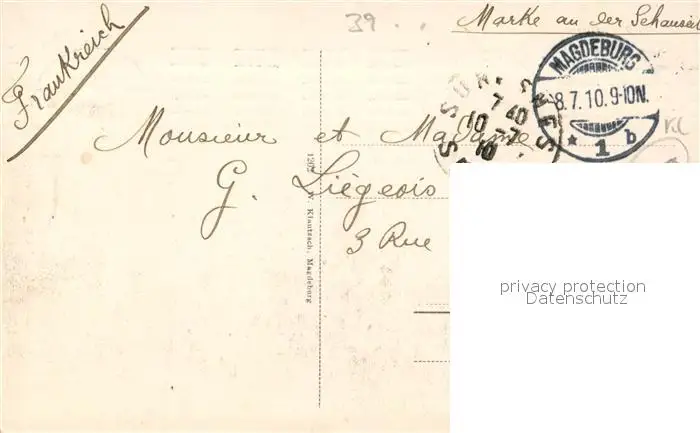 Frankreich
39
Marke an der Schauseit
MAGDEBURG
8.7.10. 9-10N.
* 1 b
Monsieur et Madame
G. Liégeois
3 Rue
W. Klautzsch, Magdeburg
privacy protection
Datenschutz